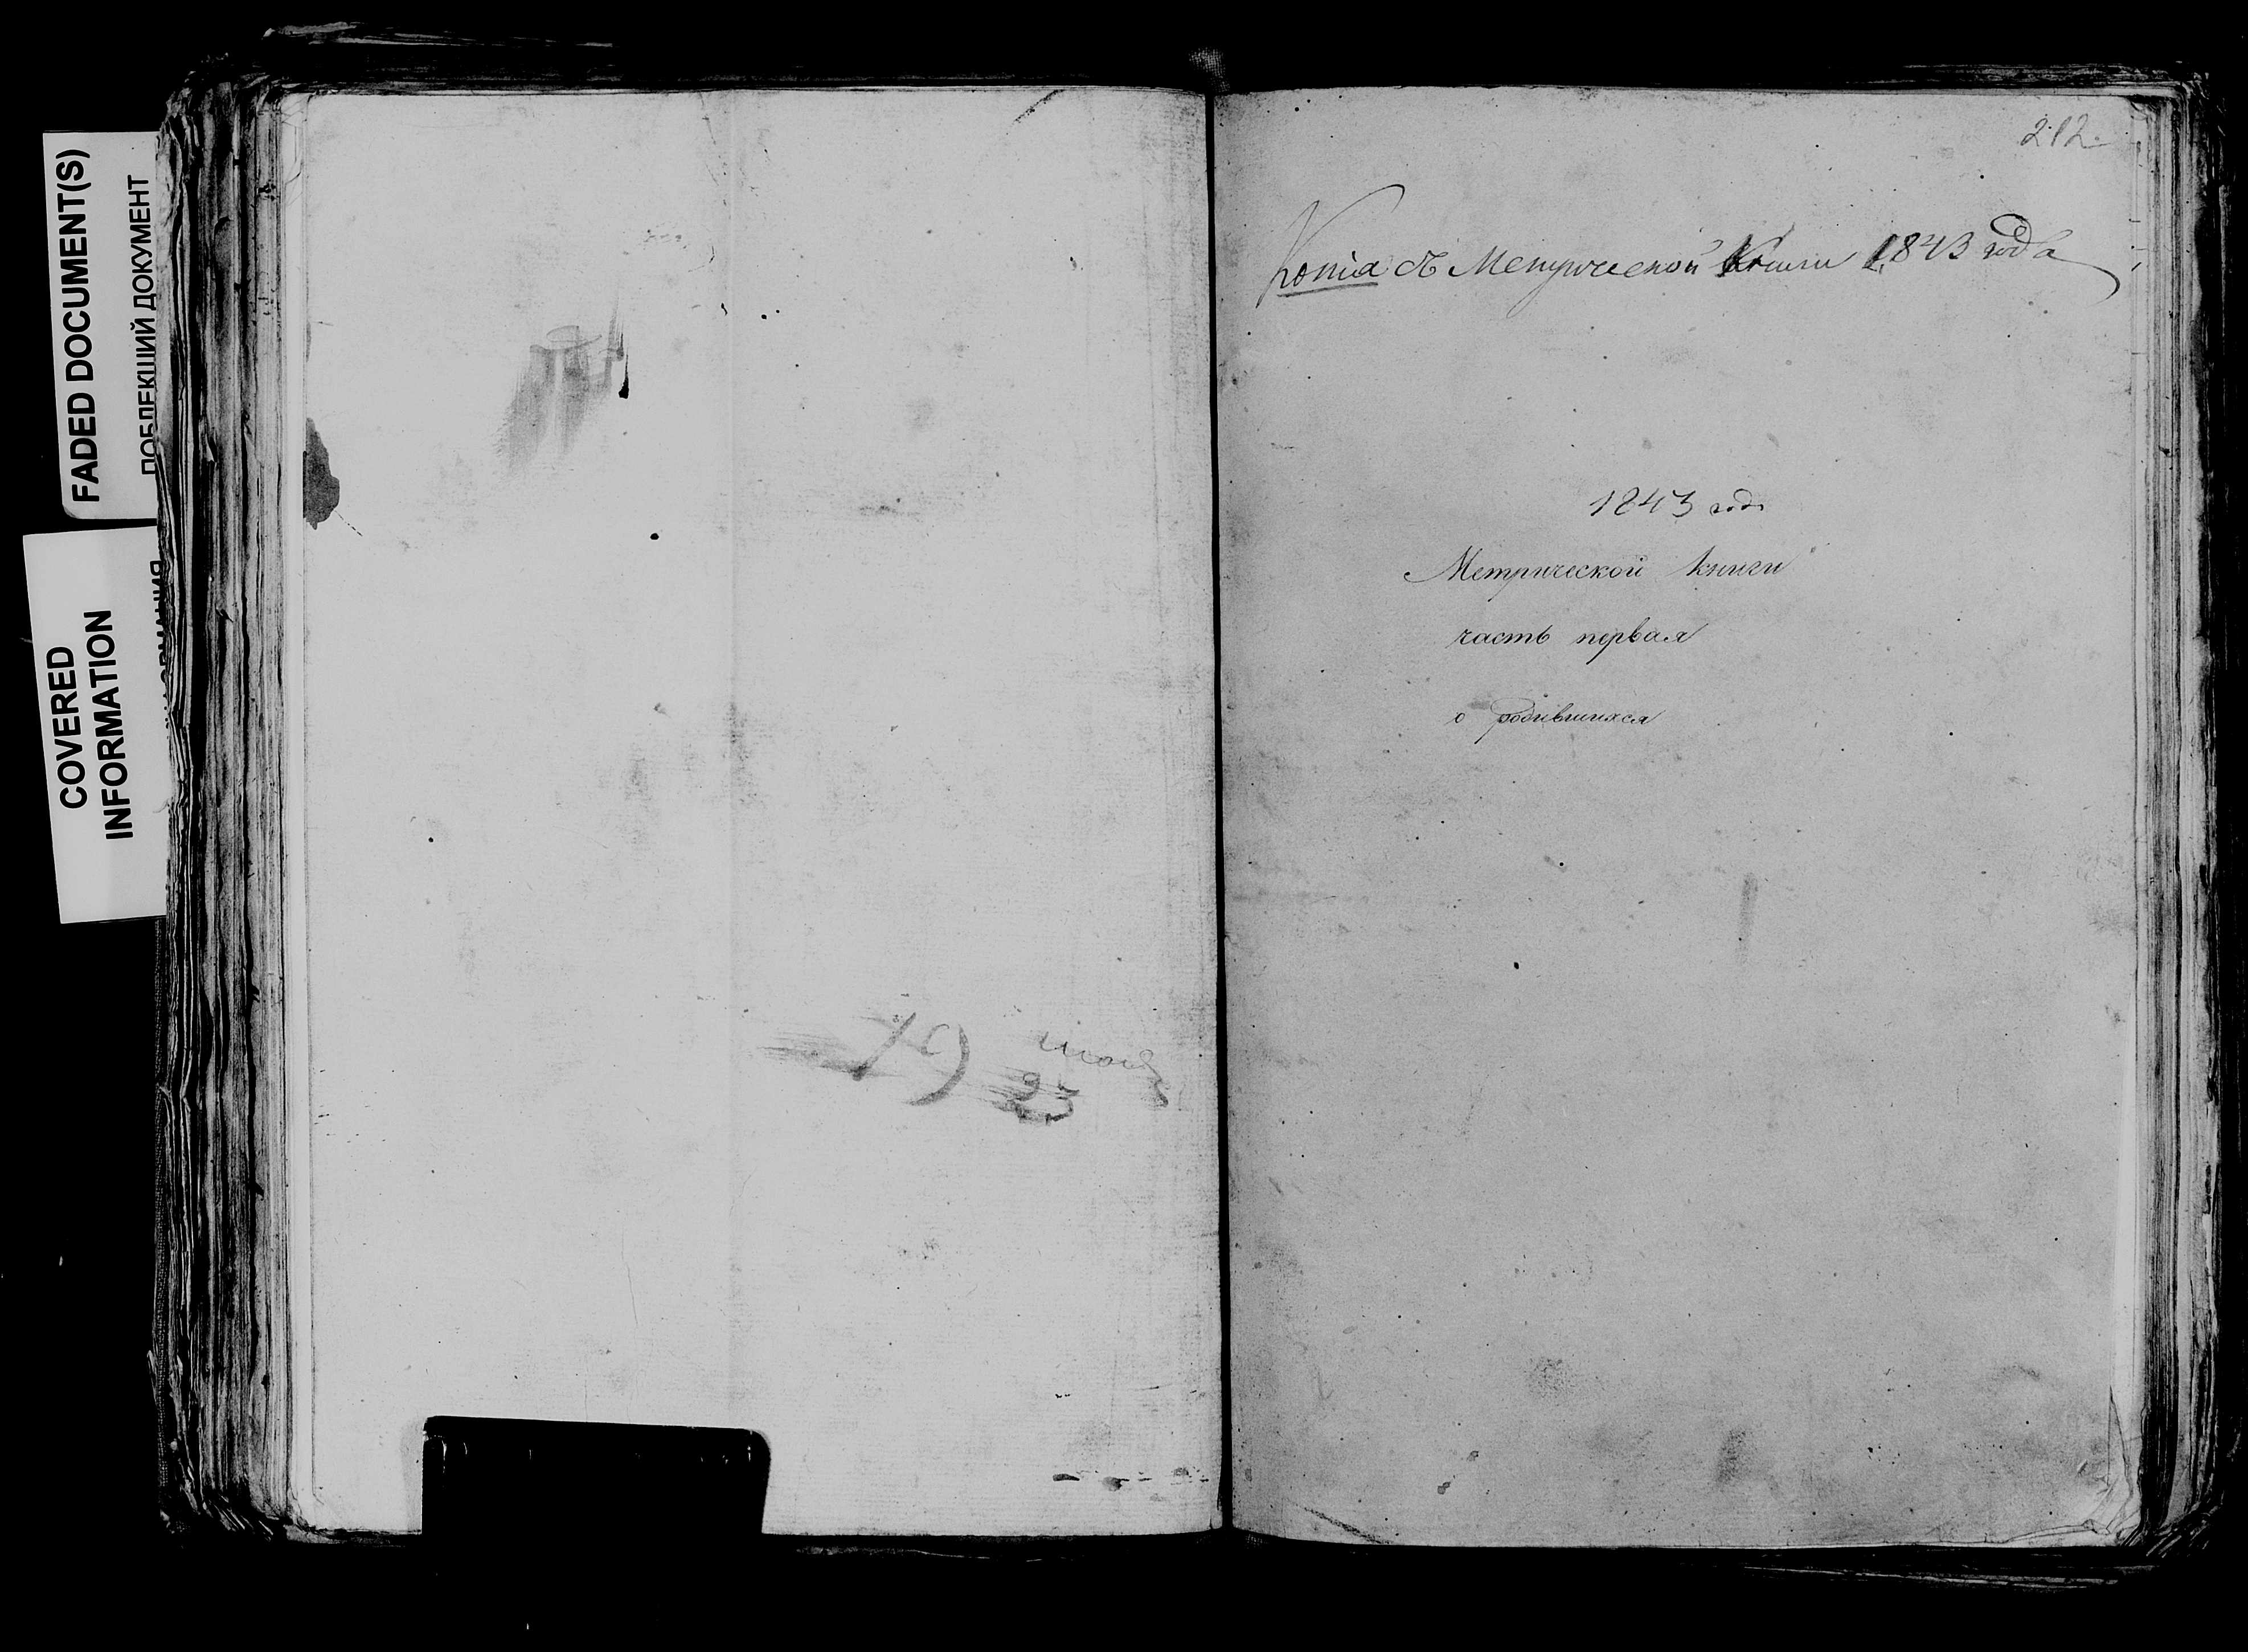 FADED DOCUMENT(S)
ПОБЛЕКШИЙ ДОКУМЕНТ
COVERED
INFORMATION
23
212.
Копія съ Метрической Книги 1843 года
1843 годъ
Метрической книги
часть первая
о родившихся